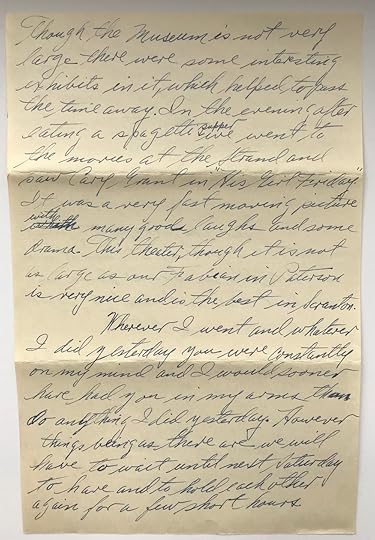 Though the Museum is not very
large there were some interesting
exhibits in it, which helped to pass
the time away. In the evening after
eating a spagetti supper we went to
the movies at the Strand and
saw Cary Grant in "His Girl Friday."
It was a very fast moving picture
with many good laughs and some
drama. This theater, though it is not
as large as our Fabean in Paterson
is very nice and is the best in Scranton.
Wherever I went and whatever
I did yesterday you were constantly
on my mind and I would sooner
have had you in my arms than
do anything I did yesterday. However
things being as there are we will
have to wait until next Saturday
to have and to hold each other
again for a few short hours